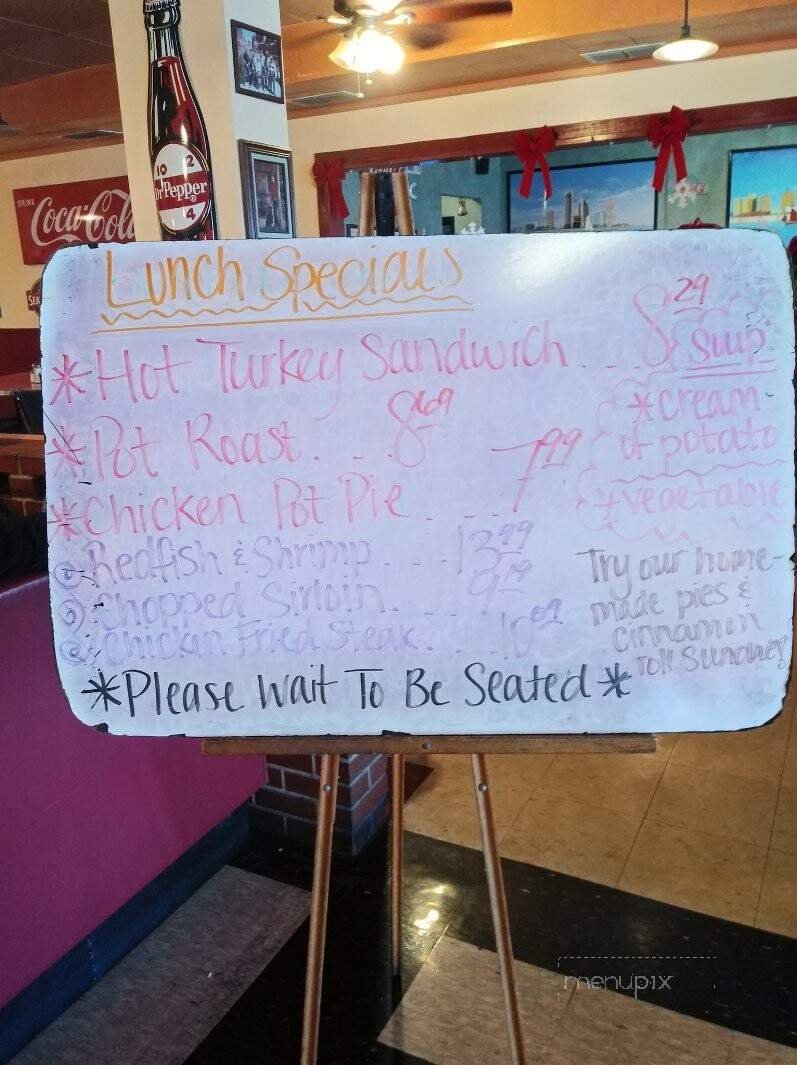 DRINK
Coca-Cola
10 2
Dr Pepper
4
Lunch Specials
*Hot Turkey Sandwich... 8.29
*Pot Roast... 8.69
*Chicken Pot Pie... 7.99
Redfish & Shrimp... 13.99
Chopped Sirloin... 9.19
Chicken Fried Steak... 10.09
Soup
*cream
of potato
*vegetable
Try our home-
made pies &
cinnamon
roll Sundaes!
*Please Wait To Be Seated*
menupix